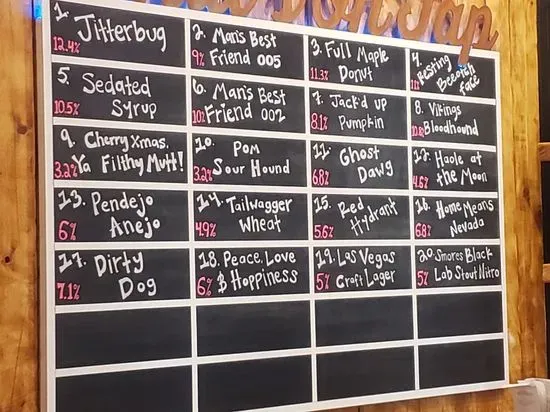 On Tap
1. Jitterbug
12.4%
2. Man's Best
9% Friend 005
3. Full Maple
11.3% Donut
4.
Resting
Beeotch
Face
5. Sedated
10.5% Syrup
6. Man's Best
10% Friend 002
7. Jack'd up
8.1% Pumpkin
8. Vikings
Bloodhound
9. Cherry Xmas,
3.2% Ya Filthy Mutt!
10. Pom
3.2% Sour Hound
11. Ghost
6.8% Dawg
12. Haole at
4.6% the Moon
13. Pendejo
6% Anejo
14. Tailwagger
4.9% Wheat
15. Red
5.6% Hydrant
16. Home Means
6.8% Nevada
17. Dirty
7.1% Dog
18. Peace, Love
6% $ Hoppiness
19. Las Vegas
5% Craft Lager
20. Smores Black
5% Lab Stout Nitro